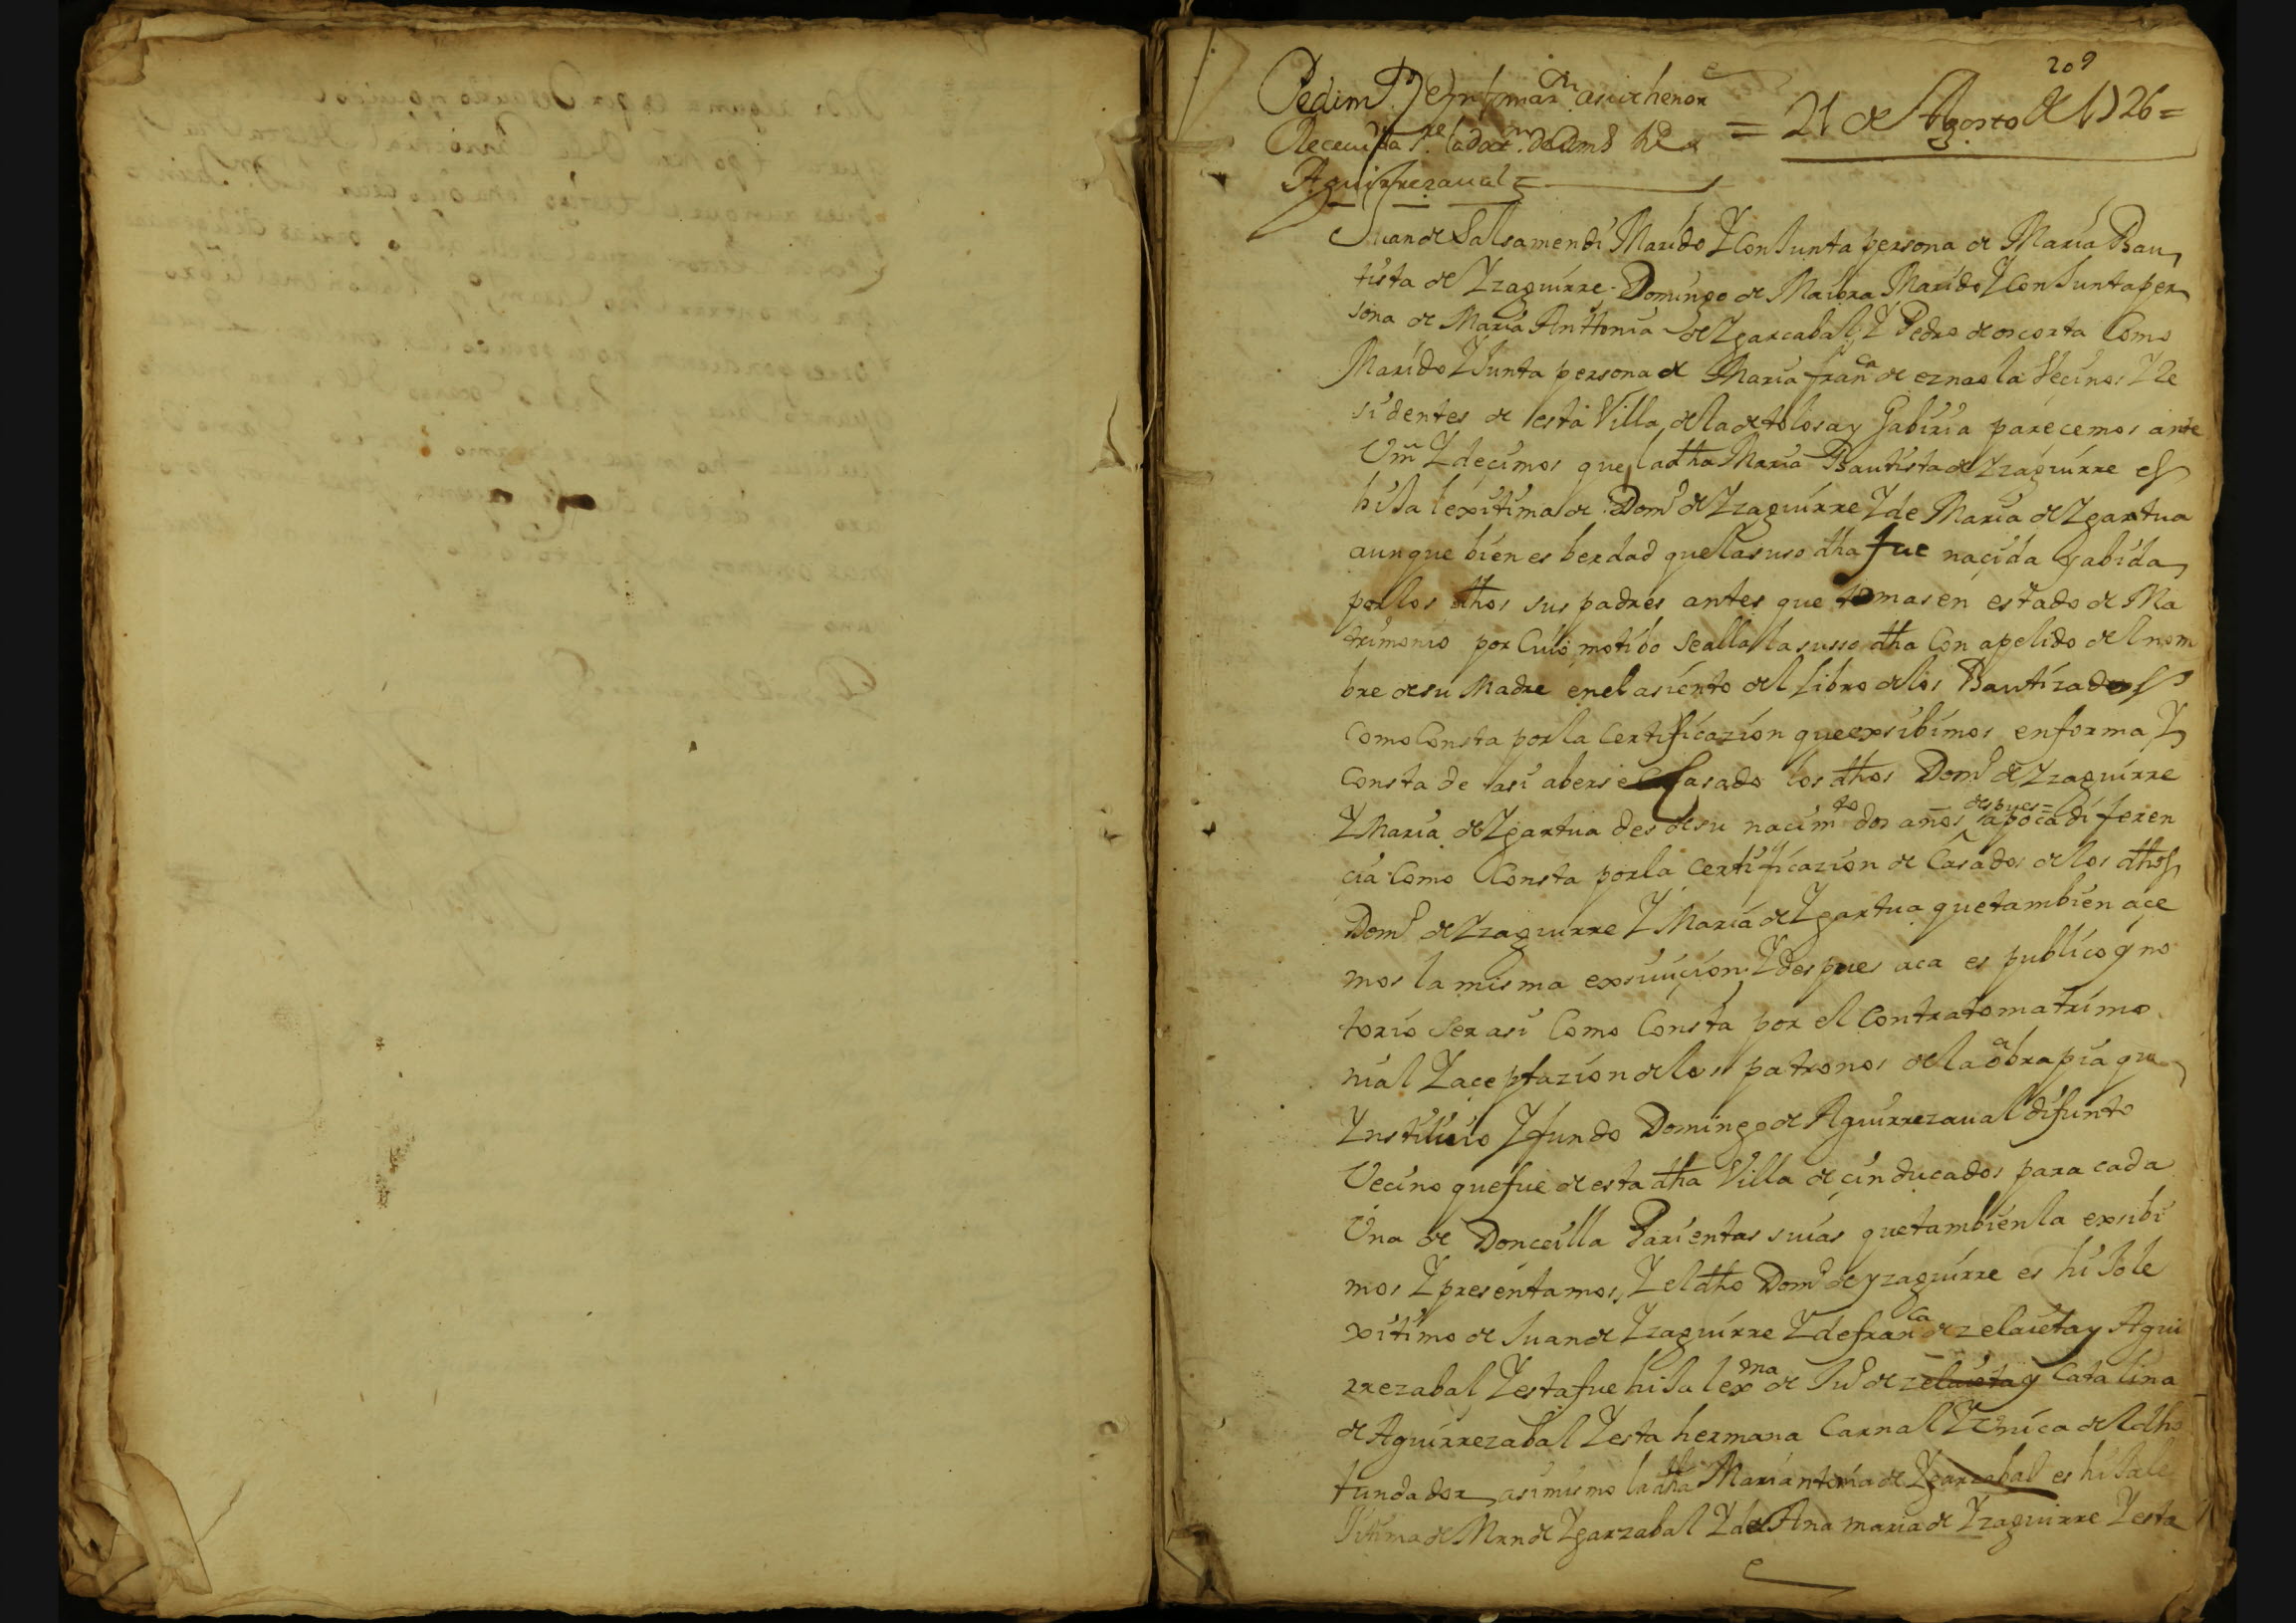 209
Pedim.to e ynformaz.n a su thenor = 21 de Agosto de 1726 =
Receuida de Domingo de
Aguirrezaual =
Juan de Salsamendi Marido Y Con Junta persona de Maria Bau
tista de Yzaguirre. Domingo de Maiora Marido Y Con Junta per
sona de Maria Anttonia de Ygarcabal, Y Pedro de oscorta Como
Marido Y Junta persona de Maria fran.ca de eznaola Vecinos Y Re
sidentes de esta Villa, de la de tolosa y Gabiria parecemos ante
Vm Y decimos que la dha Maria Bautista de Yzaguirre es
hiJa lexitima de Dom.o de Yzaguirre Y de Maria de Ygartua
aunque bien es berdad que la suso dha fue nacida y abida
por los dhos sus padres antes que tomasen estado de Ma
trimonio por Cuio motibo se alla la susso dha Con apelido del nom
bre de su Madre en el asiento del Libro de los Bautizados
Como Consta por la Certificazion que exsibimos en forma, Y
Consta de asi aberse Casado los dhos Dom.o de Yzaguirre
Y Maria de Ygartua des de su nacim.to dos años despues= a poca diferen
cia Como Consta por la Certificazion de Casados de los dhos
Dom.o de Yzaguirre Y Maria de Ygartua que tambien ace
mos la misma exsiuicion, Y despues aca es publico y no
torio ser asi Como Consta por el Contrato matrimo
nial Y aceptazion de los patronos de la obra pia que
Ynstituio Y fundo Domingo de Aguirrezaual difunto
Vecino que fue de esta dha Villa de cin ducados para cada
Vna de Doncella Parientas suias que tambien la exsibi
mos Y presentamos, Y el dho Dom.o de yzaguirre es hiJo le
xitimo de Juan de Yzaguirre Y de fran.ca de zelaieta y Agui
rrezabal, Y esta fue hiJa lex.ma de Ju.o de zelaieta y Catalina
de Aguirrezabal Y esta hermana Carnal Y Vnica del dho
fundador, asimismo la dha Maria antonia de Ygarzabal es hiJa le
Jitima de Mrn de Ygarzabal Y de Ana maria de Yzaguirre Y esta